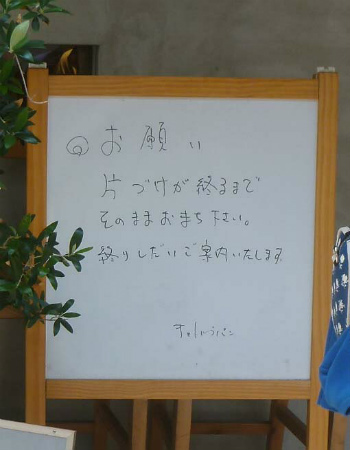 ◎お願い
片づけが終るまで
そのままおまち下さい。
終りしだいご案内いたします